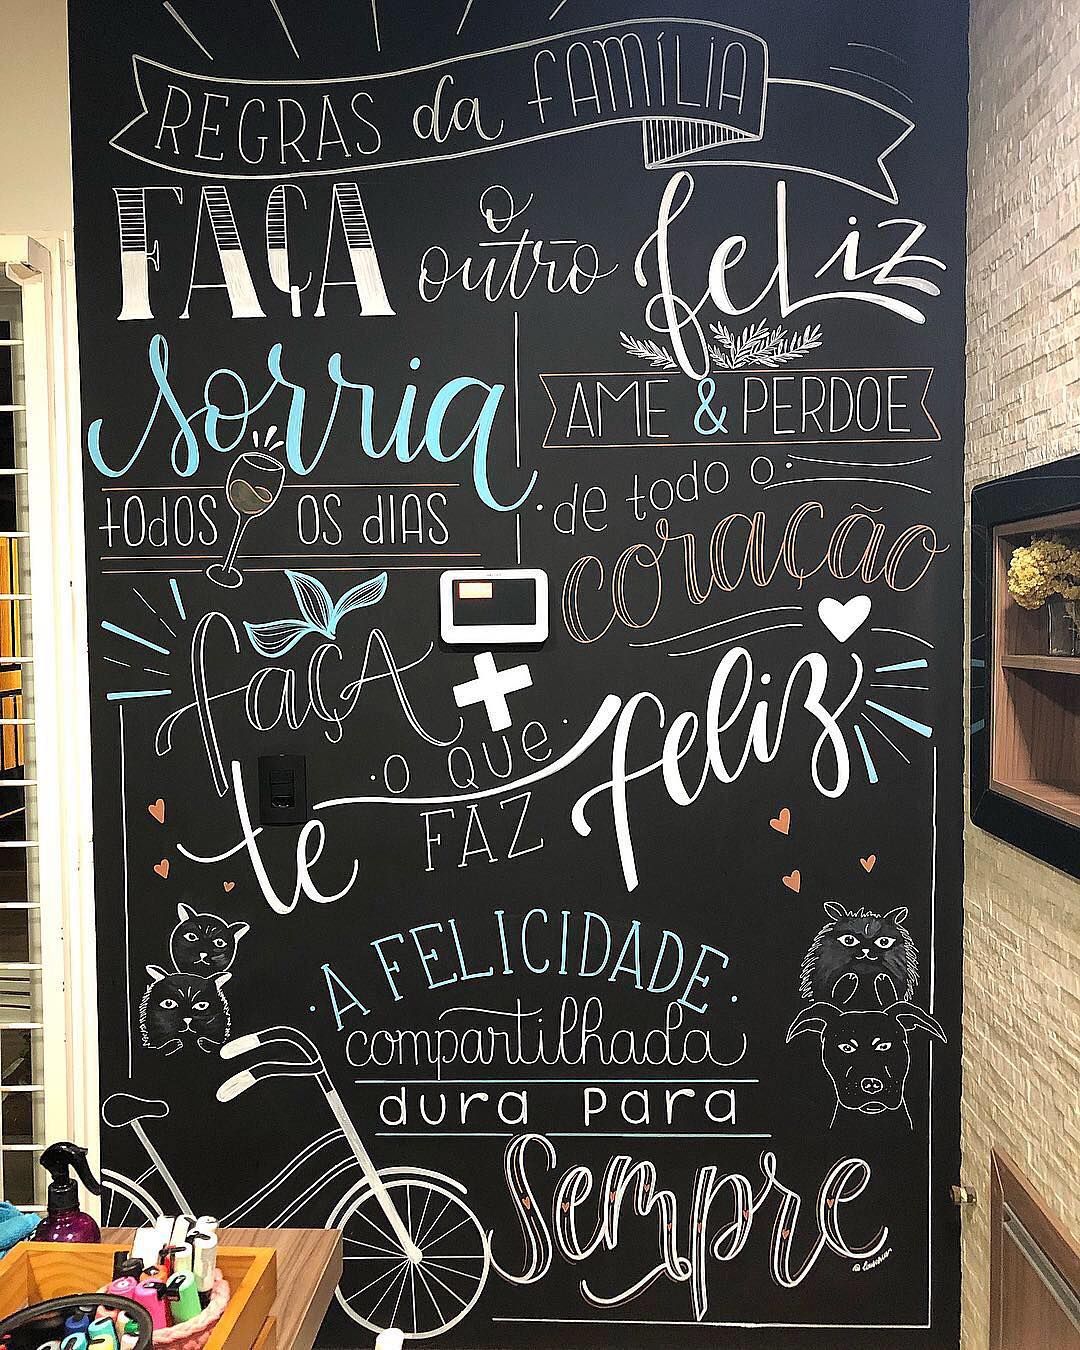 REGRAS da FAMÍLIA
FAÇA o outro feliz
Sorria
todos os dias
AME & PERDOE
de todo o
coração
faça + o que
te FAZ feliz
A FELICIDADE
compartilhada
dura para
Sempre